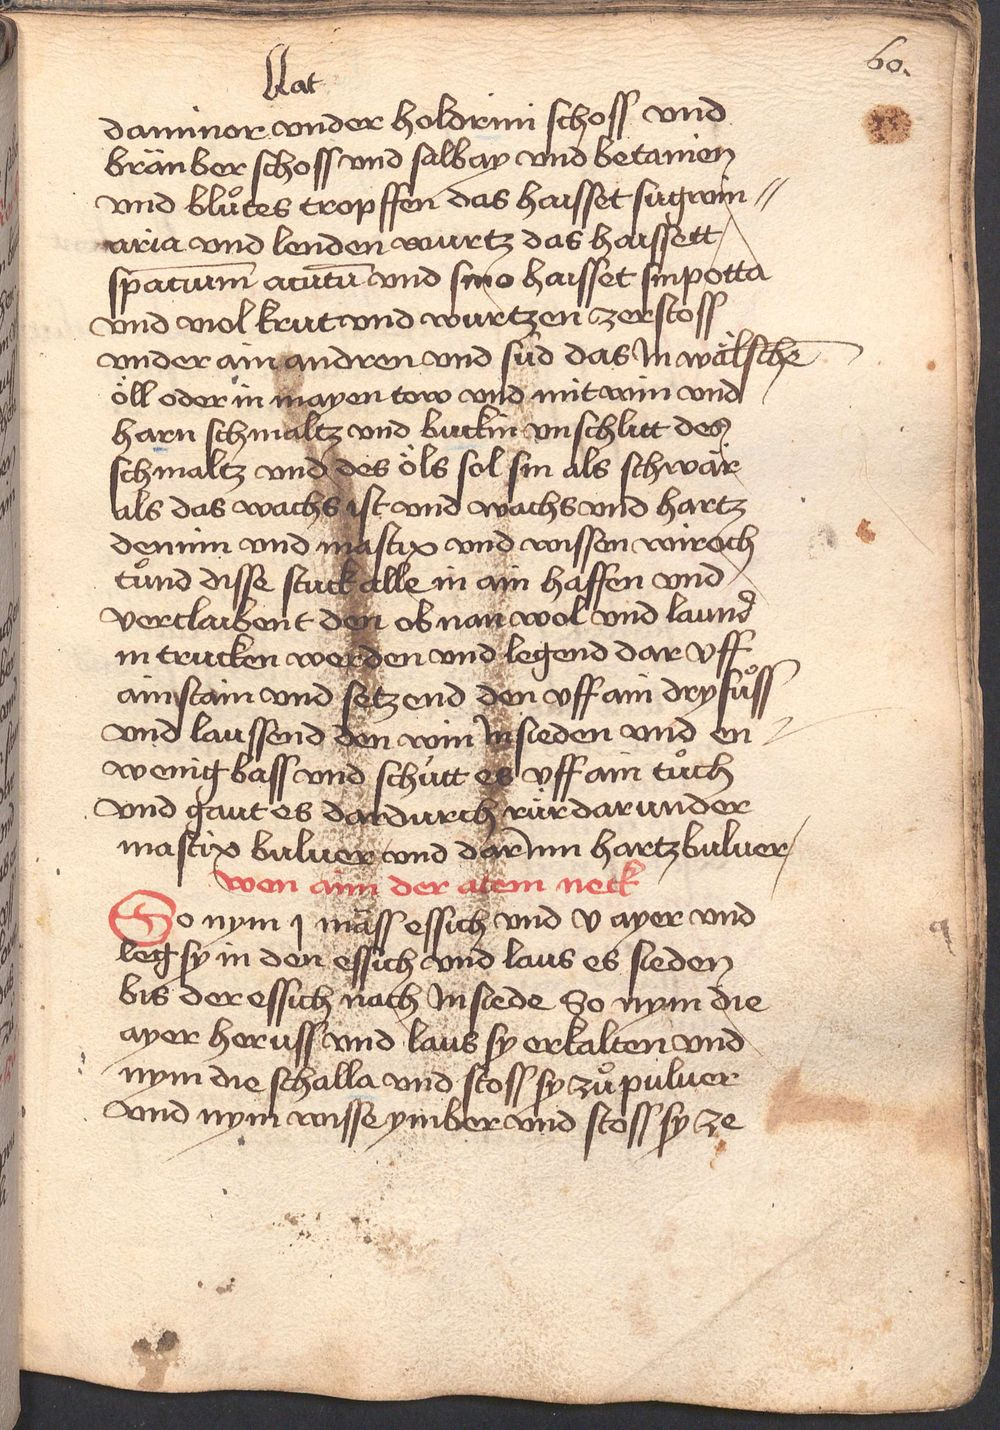 60.
Nat
daminor vnder holdrini schoss vnd
bränber schoss vnd salbay vnd betanien
vnd blůtes tropffen das haisset sugwin //
aria vnd lenden wurtz das haissett
spacium acutū vnd haisset sinpotta
vnd viol krut vnd wurtzen zerstoss
vnder ain andren vnd süd das In wälsche
öll oder in mayen tow vnd mit win vnd
harn schmaltz vnd buckin vnschlitt des
schmaltz vnd des öls sol sin als schwär
als das wachs ist vnd wachs vnd hartz
dennin vnd mastix vnd wissen wiroch
tůnd disse stuck alle in ain haffen vnd
verclaibent den obnan wol vnd laund
in trucken werden vnd legend dar vff
ain stain vnd setzend den vff ain dryfůss
vnd laussend den win In sieden vnd en
wenig bass vnd schütt es vff ain tůch
vnd gaut es dardurch rür darunder
mastix buluer vnd darnin hartz buluer
wen aim der atem neck
So nym j mäss essich vnd v ayer vnd
leg sy in den essich vnd laus es sieden
bis der essich nach In siede So nym die
ayer heruss vnd laus sy erkalten vnd
nym die schalla vnd stoss sy zů puluer
vnd nym wisse ymber vnd stoss sy ze